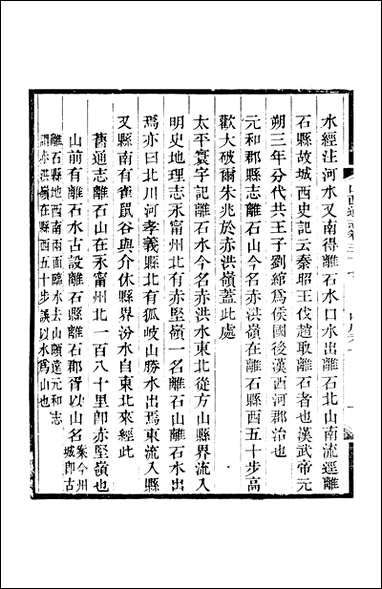 水經注河水又南得離石水口水出離石北山南流逕離
石縣故城西史記云秦昭王伐趙取離石者也漢武帝元
朔三年分代共王子劉綰爲侯國後漢西河郡治也
元和郡縣志離石山今名赤洪嶺在離石縣西五十步高
歡大破爾朱兆於赤洪嶺蓋此處
太平寰宇記離石水今名赤洪水東北從方山縣界流入
明史地理志永甯州北有赤堅嶺一名離石山離石水出
焉亦曰北川河孝義縣北有狐岐山勝水出焉東流入縣
又縣南有雀鼠谷與介休縣界汾水自東北來經此
舊通志離石山在永甯州北一百八十里卽赤堅嶺也
山前有離石水古設離石郡得以山名案今州城卽古
離石縣地西南兩面臨水去山頗遠元和志
謂赤洪嶺在縣西五十步誤以水爲山也